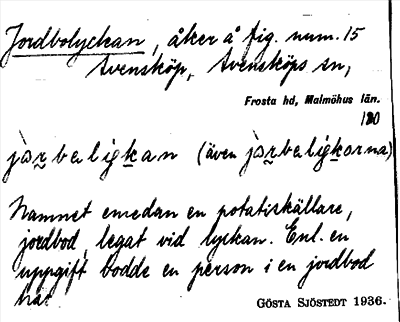 Jordbolyckan, åker å fig. num. 15
Svensköp, Svensköps sn,
Frosta hd, Malmöhus län.
180
jo̱rbəligkan (även jo̱rbəligkorna)
Namnet emedan en potatiskällare,
jordbod, legat vid lyckan. Enl. en
uppgift bodde en person i en jordbod
här
GÖSTA SJÖSTEDT 1936.